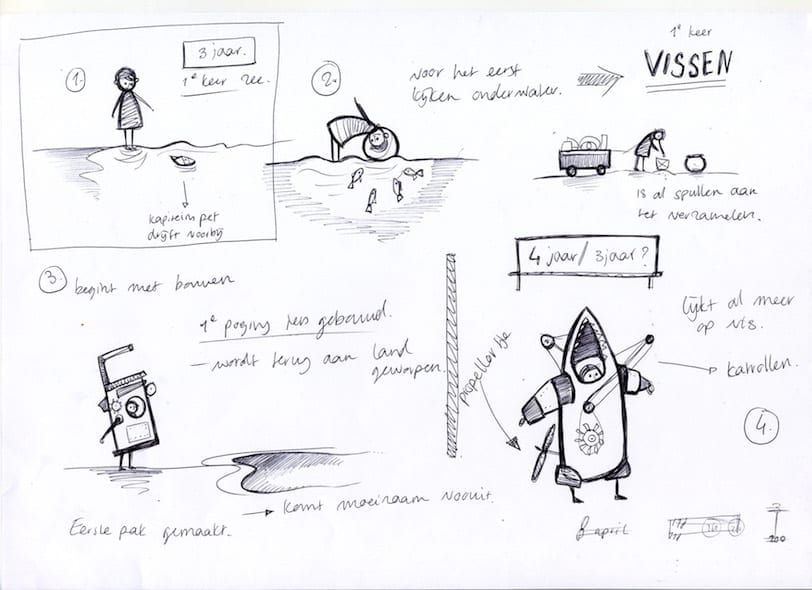 1.
3 jaar.
1e keer zee.
kapitein pet
drijft voorbij
2.
voor het eerst
kijken onderwater.
1e keer
VISSEN
is al spullen aan
het verzamelen.
3.
begint met bouwen
1e poging iets gebouwd.
– wordt terug aan land
geworpen.
Eerste pak gemaakt.
komt moeizaam vooruit.
4 jaar / 3 jaar?
propellertje
lijkt al meer
op vis.
katrollen.
4.
8 april
3
200